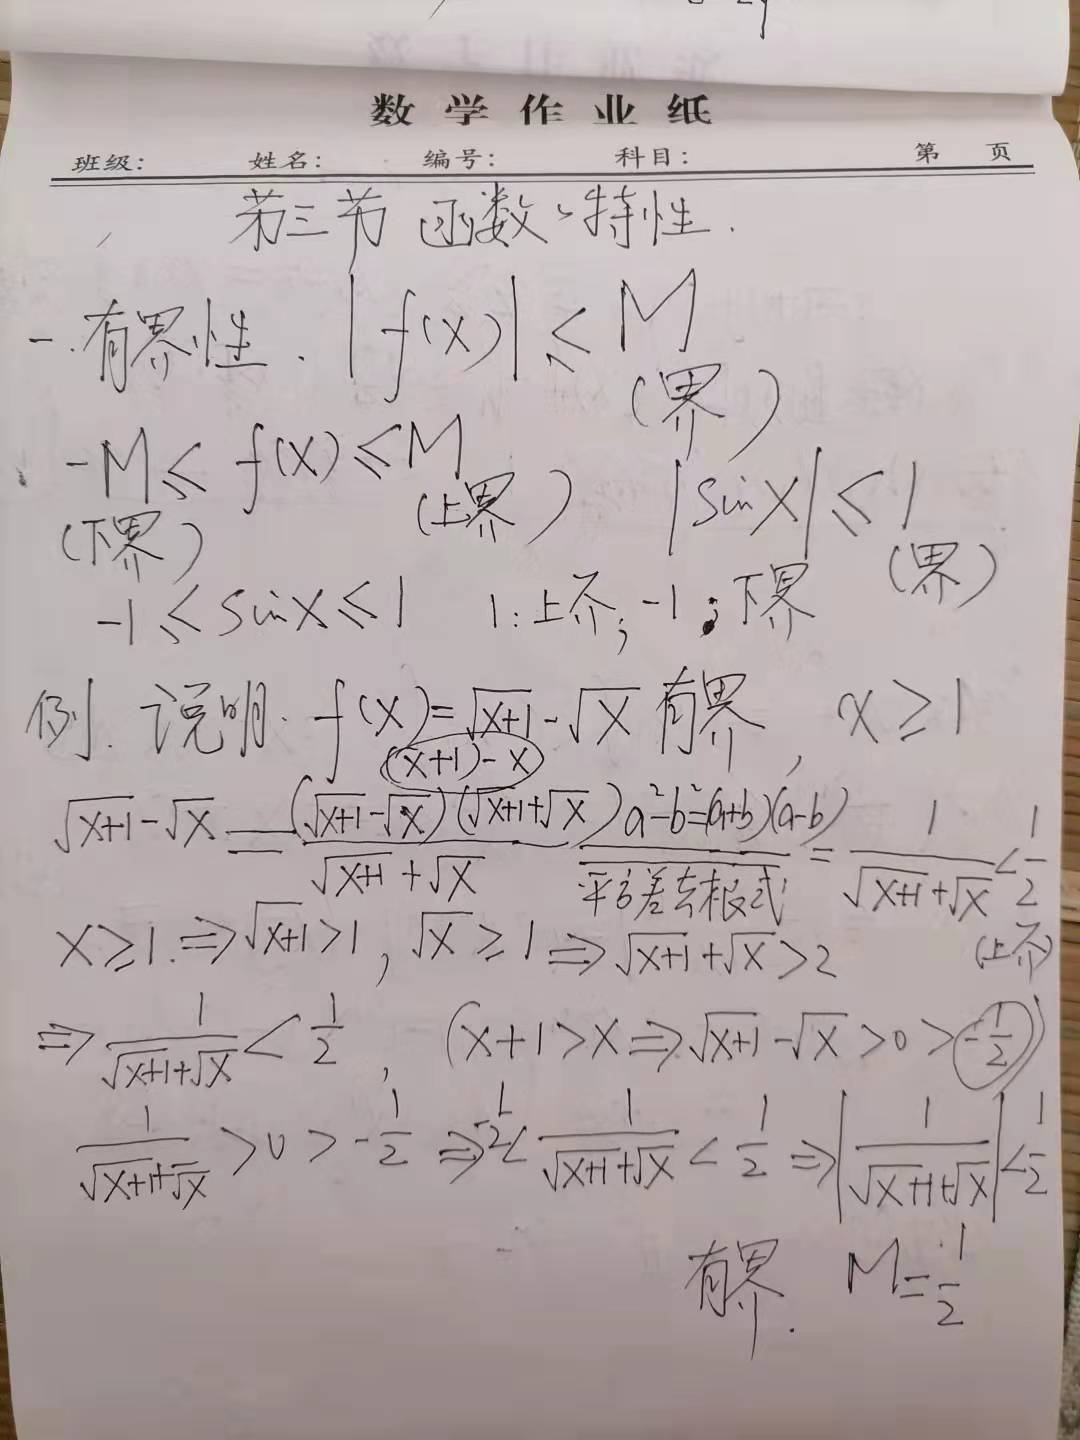 数学作业纸
班级: 姓名: 编号: 科目: 第 页
第三节 函数、特性.
一. 有界性. |f(x)| ≤ M
(界)
-M ≤ f(x) ≤ M
(下界) (上界) |sinx| ≤ 1
(界)
-1 ≤ sinx ≤ 1 1:上界; -1:下界
例. 说明: f(x)=√(x+1)-√x 有界, x≥1
(x+1)-x
√(x+1)-√x = (√(x+1)-√x)(√(x+1)+√x)/(√(x+1)+√x) a²-b²=(a+b)(a-b) = 1/(√(x+1)+√x) < 1/2
平方差去根式
(上界)
x≥1. ⇒ √(x+1)>1, √x≥1 ⇒ √(x+1)+√x>2
⇒ 1/(√(x+1)+√x) < 1/2, (x+1>x ⇒ √(x+1)-√x>0>-1/2)
1/(√(x+1)+√x) >0>-1/2 ⇒ -1/2< 1/(√(x+1)+√x) < 1/2 ⇒ |1/(√(x+1)+√x)|<1/2
有界. M=1/2